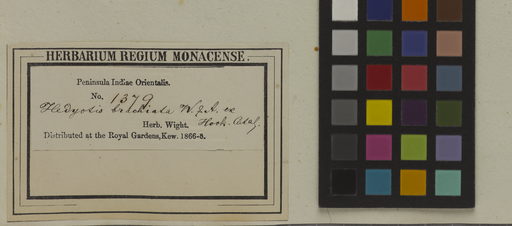 HERBARIUM REGIUM MONACENSE.
Peninsula Indiae Orientalis.
No. 1379
Hedyotis brachiata W. & A. ex
Herb. Wight. Hoch. Catal.
Distributed at the Royal Gardens, Kew. 1866-8.